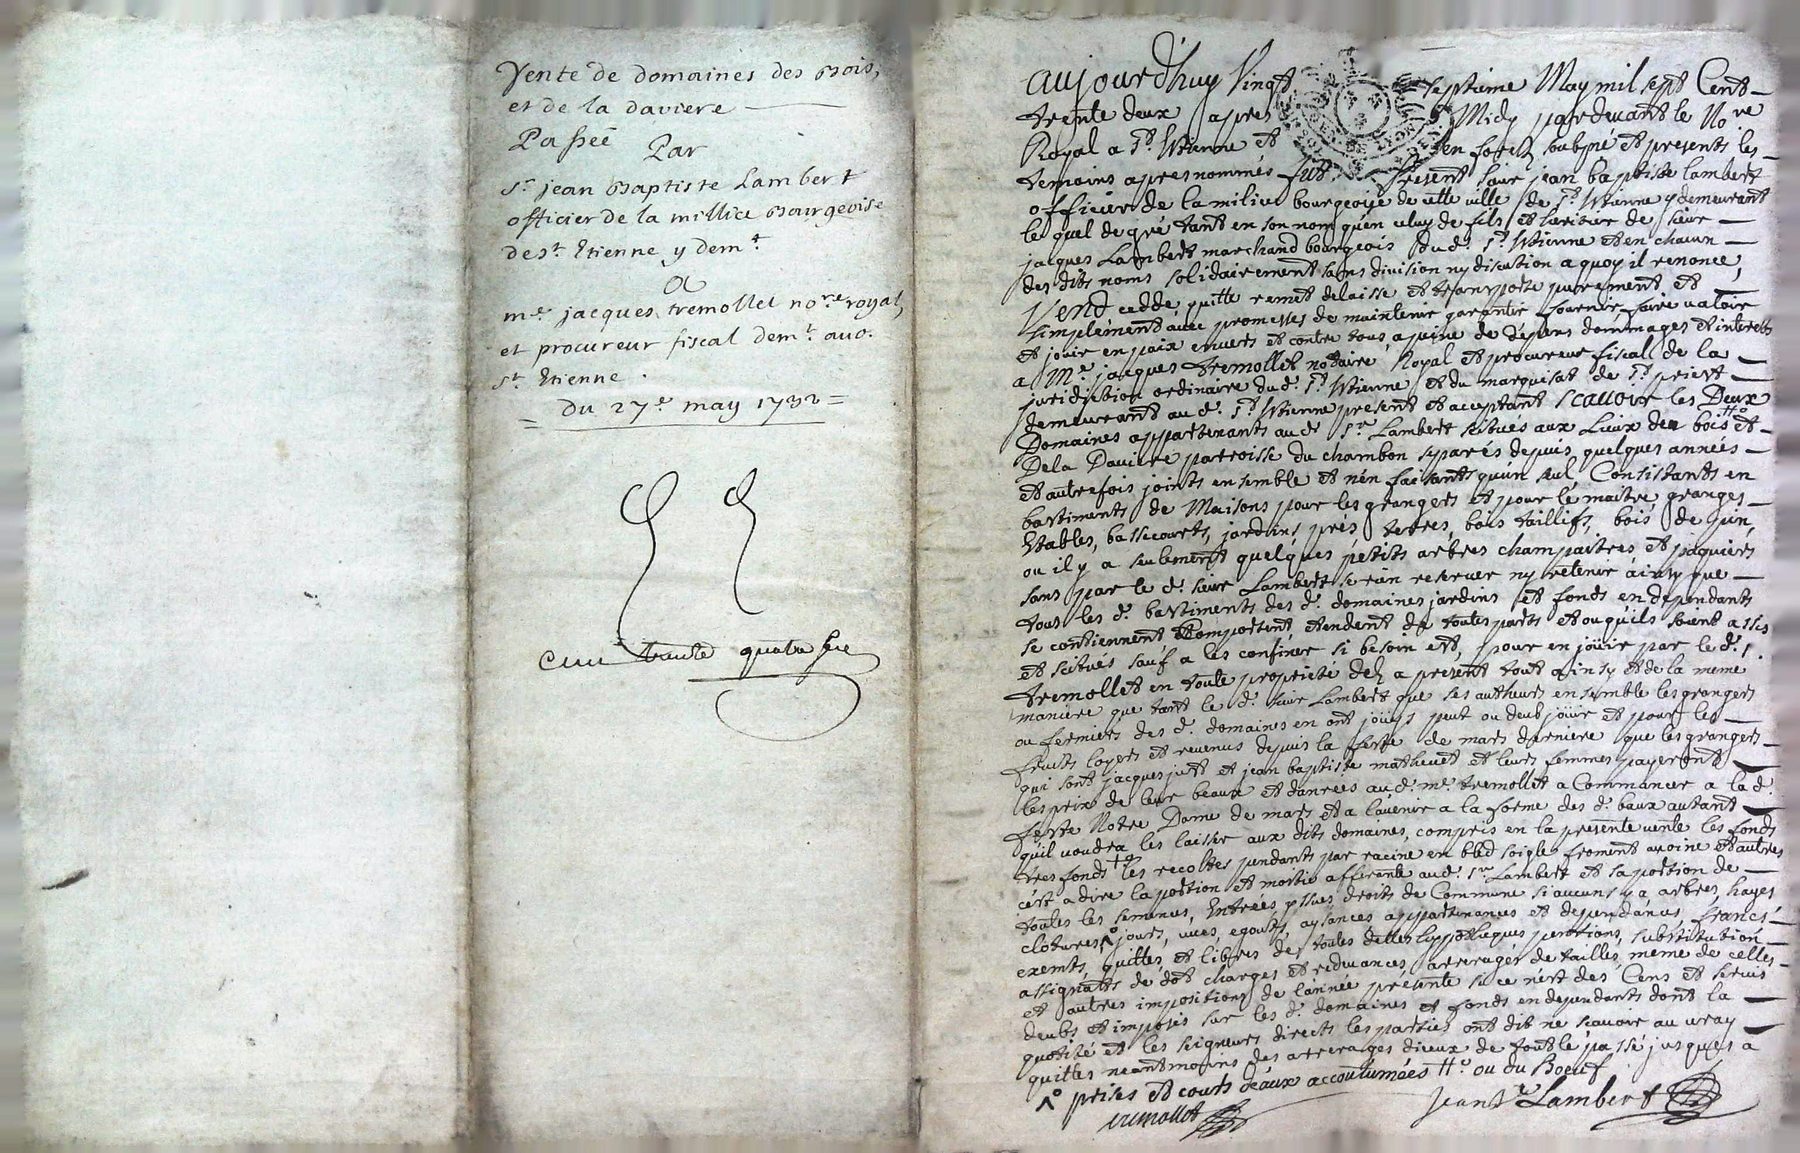 Vente de domaines des Bois,
et de la daviere
Passeé Par
Sr. jean Baptiste Lambert
officier de la millice Bourgeoise
de St. Etienne y demt.
a
me. jacques tremollet nore. royal,
et procureur fiscal demt. aud.
St. Etienne.
= du 27e. may 1732 =
cent trente quatre
aujourd'huy Vingt septieme May mil sept Cent
trente deux apres Midy pardevant le Nore
Royal a St. Etienne et en forest soubsné et presents les
temoins apres nommés fut Present sieur jean baptiste lambert
officier de la milice bourgeoise de cette ville de St. Etienne y demeurant
lequel de gré tant en son nom qu'en celuy de fils et heritier de sieur
jacques Lambert marchand bourgeois dud. St. Etienne et en chacun
des dits noms solidairement sans division ny discution a quoy il renonce,
Vend cedde, quitte remet delaisse et transporte purement et
simplement avec promesses de maintenir garantir fournir faire valoir
et jouir en paix envers et contre tous a peine de depens dommages et interests
a Me. jacques tremollet notaire Royal et procureur fiscal de la
juridiction ordinaire dud. St. Etienne et du marquisat de St. priest
demeurant aud. St. Etienne present et acceptant scavoir les Deux
Domaines appartenants aud. Sr. Lambert scitués aux Lieux des bois # et
De la Daviere parroisse du chambon separés depuis quelques années
et autrefois joints ensemble et n'en faisants qu'un seul Consistants en
bastiments de Maisons pour les grangers et pour le maitre granges
Etables, bassecourts, jardins, prés terres, bois taillifs, bois de pin,
ou il y a seulement quelques petits arbres champaitres et paquiers
sans par le d. sieur Lambert se rien reserver ny retenir ainsy que
tous les d. bastiments des d. domaines jardins et fonds en dependants
se contiennent, Comportent, etendent de toutes parts et ou qu'ils soient assis
et scitués sauf a les confiner si besoin est, pour en joüir par le d. S.
tremollet en toute proprieté dez a present tout ainsy et de la meme
maniere que tant le d. sieur Lambert que ses autheurs ensemble les grangers
ou fermiers des d. domaines en ont joüys peut ou deub joüir et pour les
fruits loyers et revenus depuis la feste de mars derniere que les grangers
qui sont jacques just et jean baptiste mathevet et leurs femmes payeront
les prix de leur beaux et danrées aud. me. tremollet a Commancer a la d.
feste Notre Dame de mars et a l'avenir a la forme des d. baux autant
qu'il voudra les laisser aux dits domaines, compris en la presente vente les fonds
tres fonds les recoltes pendants par racine en bled soigle froment avoine et autres
c'est a dire la portion et moitié afferante aud. Sr. Lambert et sa portion de
toutes les semences, Entrées yssues droits de Commune si aucuns y a, arbres, hayes
clotures, jours, vues, egouts, aysances appartenances et dependances, francs
exemts, quittes et libres de toutes dettes hypotheques pentions, substitution
assignats de dot charges et redevances, arrerages de tailles meme de celles
et autres impositions de l'année presente si ce n'est des Cens et servis
deubs et imposés sur les d. domaines et fonds en dependants dont la
quotité et les seigneurs directs les parties ont dit ne scavoir au vray
quittes neantmoins des arrerages d'iceux de tout le passé jusques a
prises et cours d'eaux accoutumées # ou du Boeuf
tremollet Jean Bte Lambert